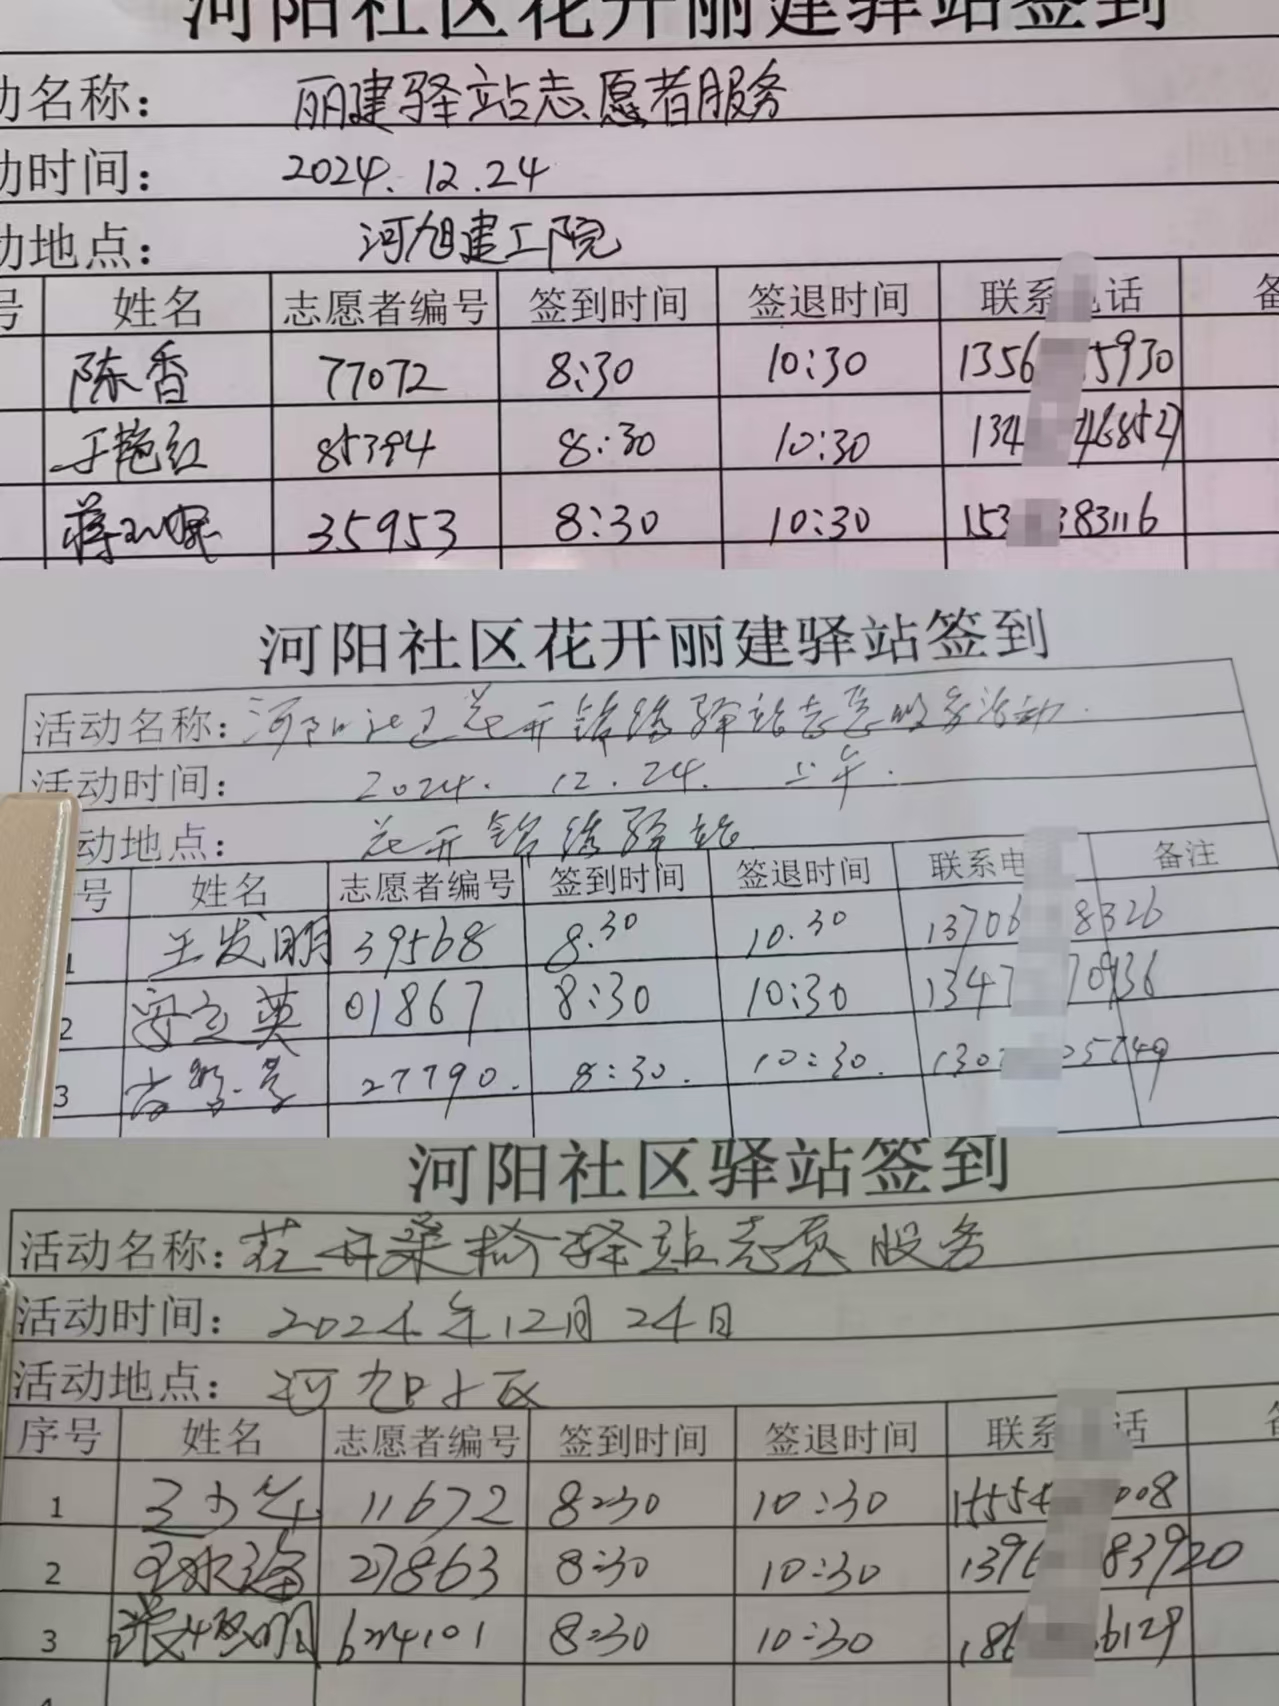 河阳社区花开丽建驿站签到
动名称： 丽建驿站志愿者服务
动时间： 2024.12.24
动地点： 河旭建工院
号 姓名 志愿者编号 签到时间 签退时间 联系 话 备
陈香 77072 8:30 10:30 1356 5930
于艳红 85394 8:30 10:30 134 46852
蒋 35953 8:30 10:30 153 383116
河阳社区花开丽建驿站签到
活动名称：河阳社区花开锦绣驿站志愿服务活动.
活动时间： 2024. 12. 24. 上午.
动地点： 花开锦绣驿站
号 姓名 志愿者编号 签到时间 签退时间 联系电 备注
1 王发明 39568 8.30 10.30 13706 8326
2 安立英 01867 8:30 10:30 1347 70936
3 27790. 8:30. 10:30. 130 05749
河阳社区驿站签到
活动名称：花开桑榆驿站志愿服务
活动时间： 2024年12月24日
活动地点： 河旭小区
序号 姓名 志愿者编号 签到时间 签退时间 联系 话
1 11672 8:30 10:30 1555 008
2 27863 8:30 10:30 1396 83920
3 张 明 624101 8:30 10:30 186 6129